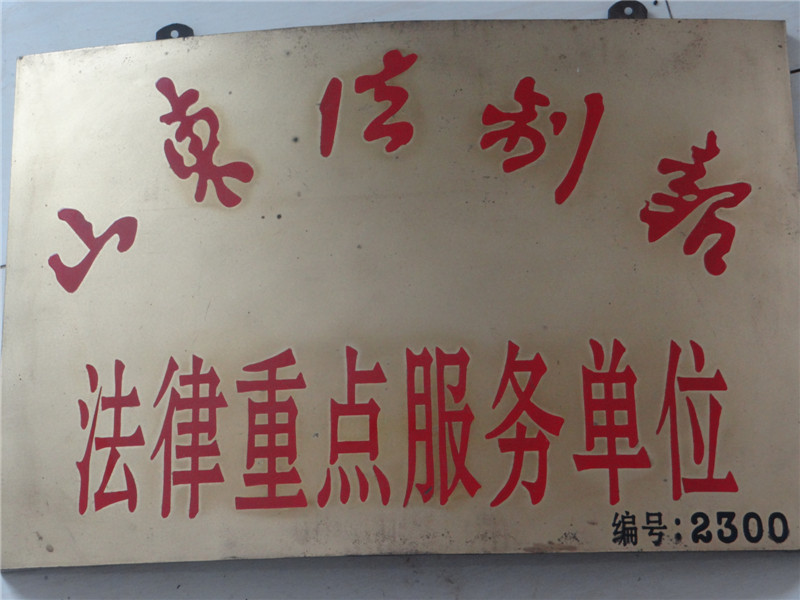 山东法制报
法律重点服务单位
编号:2300